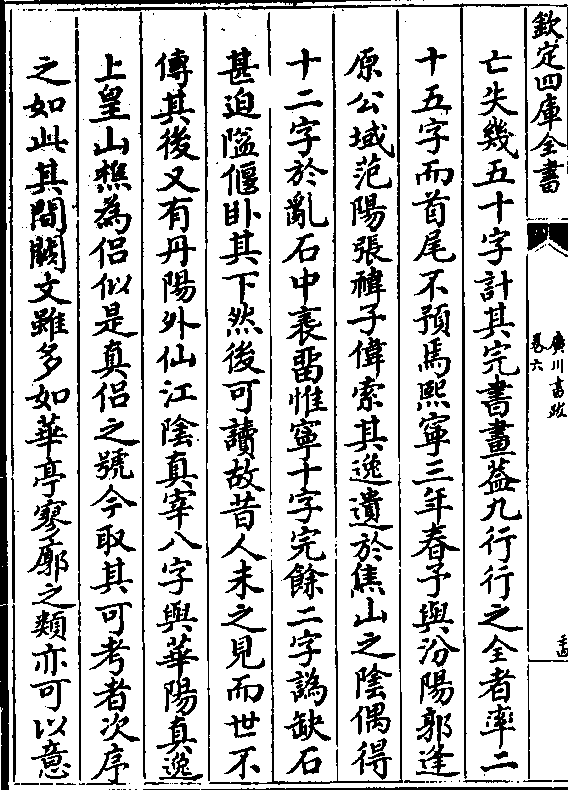 欽定四庫全書
廣川書跋
卷六
亡失幾五十字計其完書盡蓋九行行之全者率二
十五字而首尾不預焉熙寧三年春予與汾陽郭逢
原公域范陽張禕子偉索其逸遺於焦山之陰偶得
十二字於亂石中裹留惟寧十字完餘二字譌缺石
甚迫隘偃卧其下然後可讀故昔人未之見而世不
傳其後又有丹陽外仙江陰真宰八字與華陽真逸
上皇山樵為侣似是真侣之號今取其可考者次序
之如此其間闕文雖多如華亭寥廓之類亦可以意